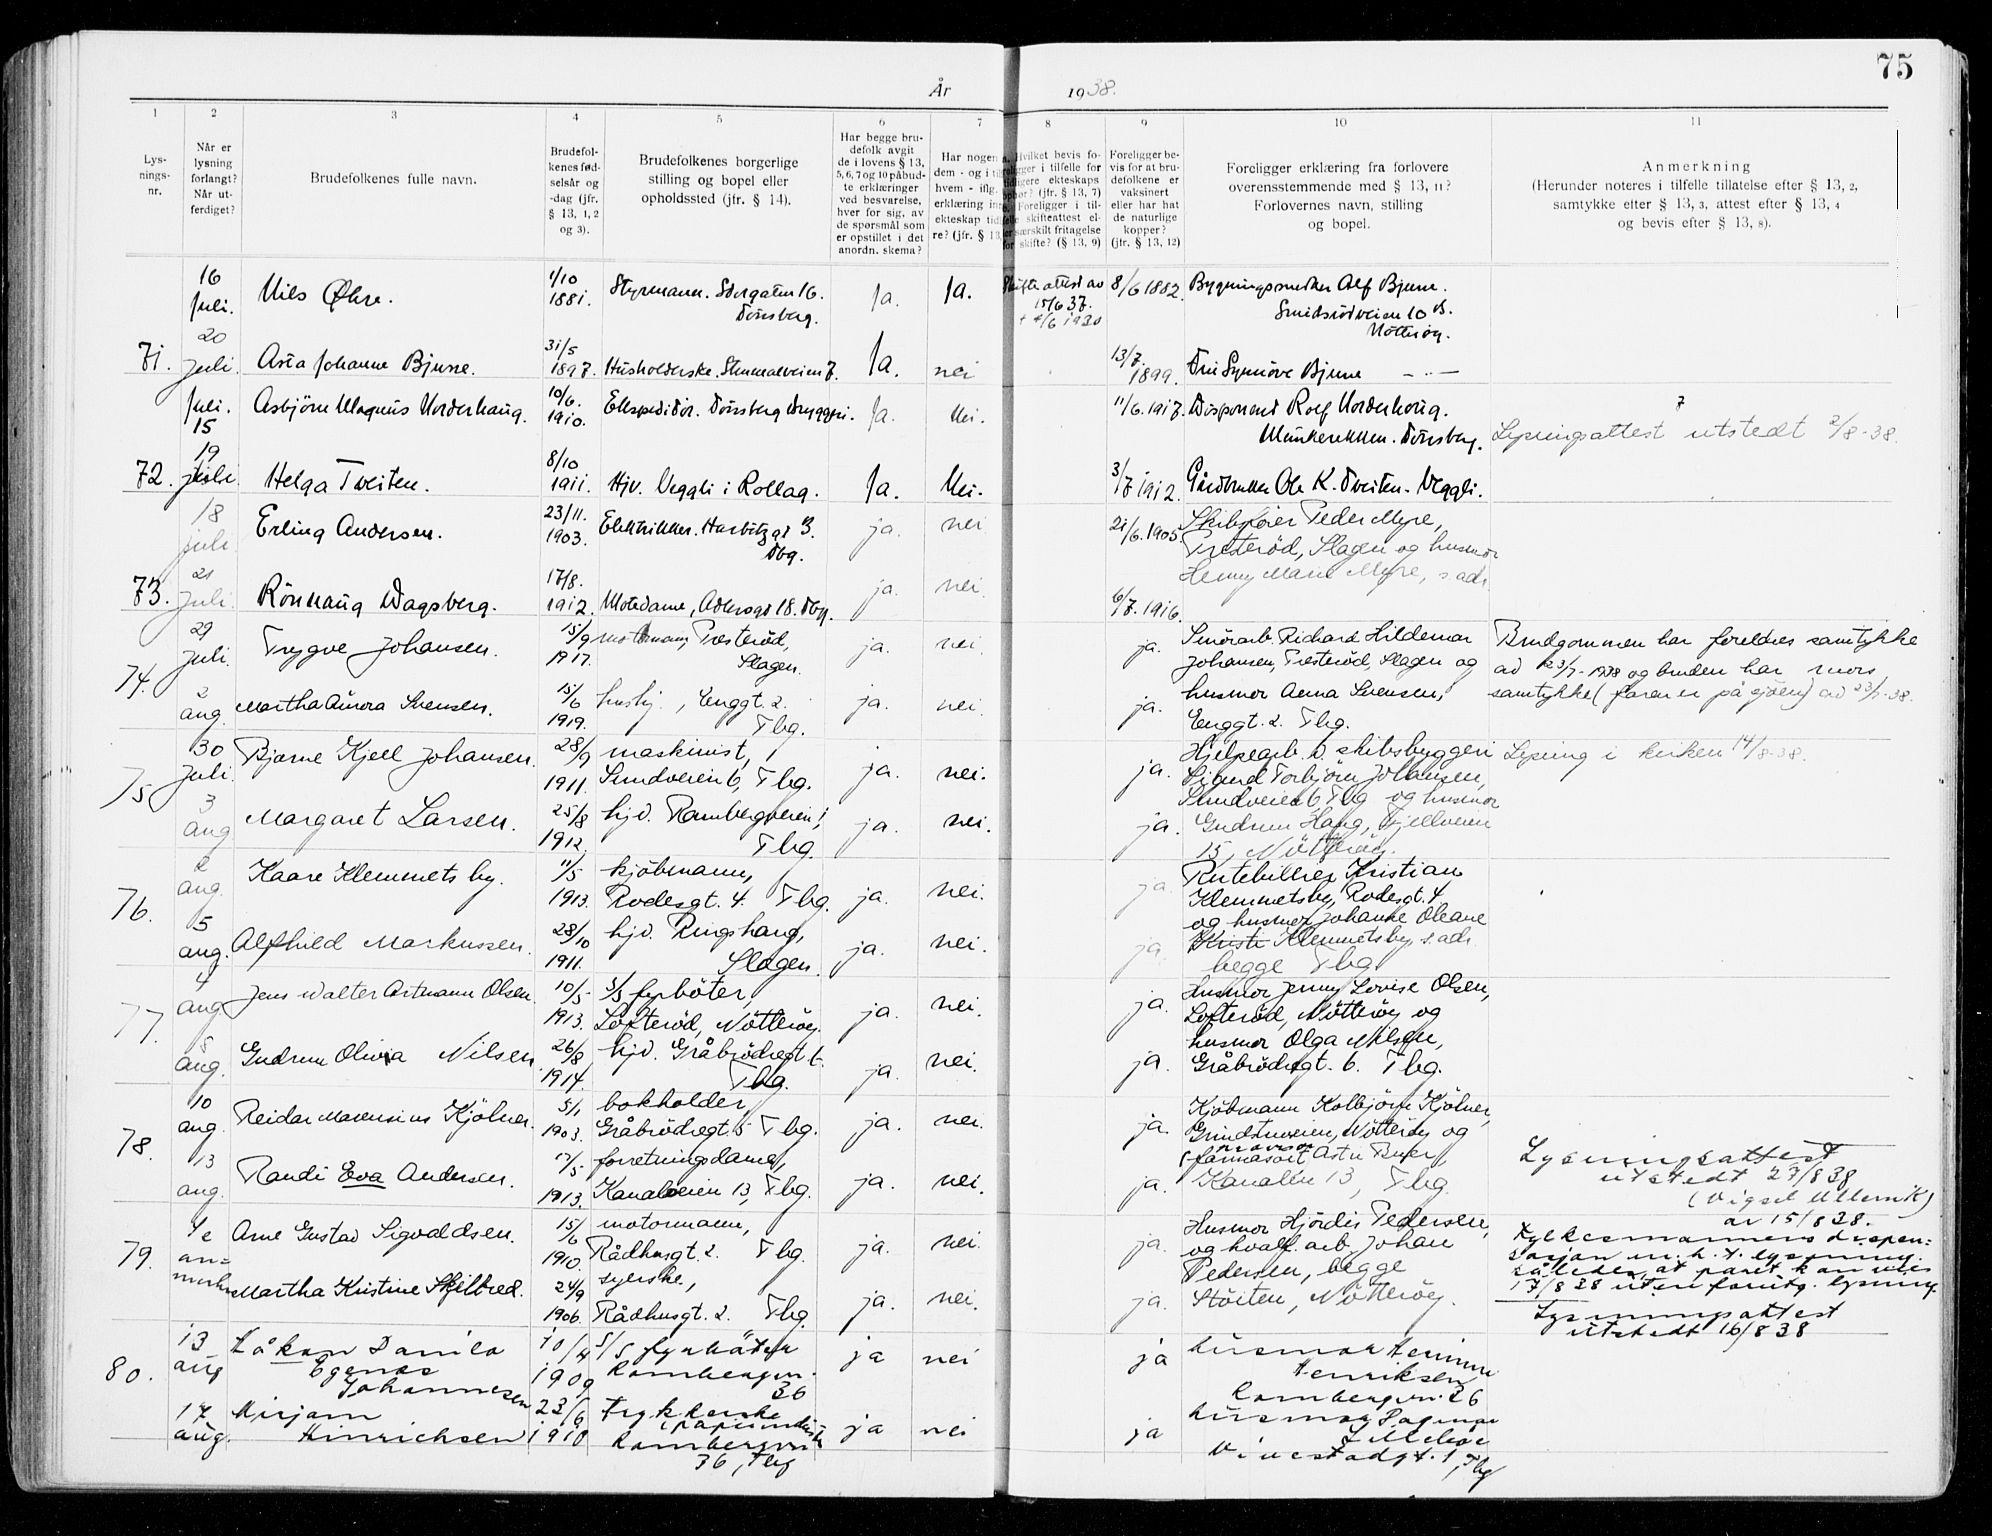 75
År 1938.
1 2 3 4 5 6 7 8 9 10 11
Lys-
nings-
nr.
Når er
lysning
forlangt?
Når ut-
ferdiget?
Brudefolkenes fulle navn.
Brudefol-
kenes fød-
selsår og
-dag (jfr.
§ 13, 1, 2
og 3).
Brudefolkenes borgerlige
stilling og bopel eller
opholdssted (jfr. § 14).
Har begge bru-
defolk avgit
de i lovens § 13,
5, 6, 7 og 10 påbud-
te erklæringer
ved besvarelse,
hver for sig, av
de spørsmål som
er opstillet i det
anordn. skema?
Har nogen
dem - og i
hvem - iflg.
erklæring
ekteskap tid
re? (jfr. § 13
Hvilket bevis fo-
ligger i tilfelle for
ekteskaps
(jfr. § 13, 7)
Foreligger i til-
skifteattest el-
særskilt fritagelse
skifte? (§ 13, 9)
Foreligger be-
vis for at bru-
defolkene er
vaksinert
eller har hat
de naturlige
kopper?
(jfr. § 13, 12)
Foreligger erklæring fra forlovere
overensstemmende med § 13, 11?
Forlovernes navn, stilling
og bopel.
Anmerkning
(Herunder noteres i tilfelle tillatelse efter § 13, 2,
samtykke efter § 13, 3, attest efter § 13, 4
og bevis efter § 13, 8).
71.
16 Juli. Nils Øhre. 1/10 1881. Styrmann. Storgaten 16. Tønsberg. Ja. Ja. Skifteattest av 15/6 37. 8/6 1882. Bygningssnekker Alf Bjune.
Smidsrödveien 10 B.
Nötteröy.
20 Juli. Asta Johanne Bjune. 31/5 1897. Husholderske. 7. Ja. nei 13/7 1899. Fru Synnöve Bjune — " —
72.
Juli. 15 Asbjörn Magnus Norderhaug. 10/6. 1910. Ekspeditör. Tönsberg Bryggeri. Ja. Nei. 11/6. 1917. Disponent Rolf Norderhoug.
Munkerekken. Tönsberg. Lysningsattest utstedt 2/8-38.
19 Juli Helga Tveiten. 8/10 1911. Hjv. Veggli i Rollag. Ja. Nei. 3/7 1912. Gårdbruker Ole K. Tveiten. Veggli.
73.
18 juli Erling Andersen. 23/11. 1903. Elektrikker. Harbitzgt 3. Tbg. ja. nei 21/6. 1905. Skibsfører Peder Myre,
Presteröd, Slagen og husmor
Henny Marie Myre, s. adr.
21 Juli. Rönnaug Dagsberg. 17/8. 1912. Motedame, 18. Tbg. ja. nei. 6/7. 1916.
74.
29 Juli. Trygve Johansen. 15/9 1917. Presteröd, Slagen. ja. nei. ja. Smörarb. Richard Hildemar
Johansen, Presteröd, Slagen og
husmor Anna Svensen,
Enggt. 2. Tbg.
Brudgommen har foreldres samtykke
av 23/7-1938 og bruden har mors
samtykke (faren er på sjöen) av 23/7-38.
2 aug. Martha Aurora Svensen. 15/6 1919. hushj., Enggt. 2. Tbg. ja. nei. ja.
75.
30 juli. Bjarne Kjell Johansen. 28/9 1911. maskinist, Sundveien 6, Tbg. ja. nei. ja. Hjelpearb. v. skibsbyggeri
Sigurd Torbjörn Johansen,
Sundveien 6 Tbg og husmor
Gudrun Haug, Fjellveien
15, Nötteröy.
Lysning i kirken 14/8-38.
3 aug Margaret Larsen. 25/8 1912. hjv. Rambergveien 1, Tbg. ja. nei. ja.
76.
2 aug. Kaare Klemmetsby. 11/5 1913. kjöbmann, Rodesgt. 4. Tbg. ja. nei. ja. Rutebileier Kristian
Klemmetsby, Rodesgt. 4
og husmor Johanne Oleane
Kristi Klemmetsby s. adr.
begge Tbg
5 aug. Alfhild Markussen. 28/10 1911. hjv. Ringshaug, Slagen. ja. nei. ja
77.
4 aug Jens Walter Artmann Olsen. 10/5 1913. S/S fyrböter, Löfteröd, Nötteröy. ja. nei. ja. Husmor Jenny Lovise Olsen,
Lofteröd, Nötteröy og
husmor Olga Nilsen,
Gråbrödregt. 6. Tbg.
5 aug. Gudrun Olivia Nilsen. 26/8 1914. hjv. Gråbrödregt 6. Tbg. ja. nei. ja.
78.
10 aug. Reidar Kjölner. 5/1 1903. bokholder, Gråbrödregt. 5 Tbg. ja. nei. ja. Kjöbmann Kolbjörn Kjölner,
Nötteröy og
farmasöit
13, Tbg.
13 aug. Randi Eva Andersen. 17/5 1913. forretningsdame, Kanalveien 13, Tbg. ja. nei. ja.
Lysningsattest
utstedt 27/8 38
(Vigsel Ullernik)
av 15/8 38.
79.
Se an-
merkn Arne Gustav Sigvaldsen. 15/6 1910. motormann, Rådhusgt. 2. Tbg. ja. nei. ja. Husmor Hjördis Pedersen,
og hvalf. arb. Johan
Pedersen, begge
Stöiten, Nötteröy.
Martha Kristine Skjelbred. 24/9 1906. syerske, Rådhusgt. 2. Tbg. ja. nei. ja.
Fylkesmannens dispen-
sasjon m. h. t. lysning.
således, at paret kan vies
17/8 38 uten forutg. lysning.
Lysningsattest
utstedt 16/8 38
80.
13 aug Håkon Danilo
Egenes
Johannesen 10/4 1909 S/S fyrböter Rambergvn. 36 ja nei ja husmor
Henriksen
Rambergvn. 36
17 aug. Mirjam
Hinrichsen 23/6 1910 Trykkerske
Rambergvn
36, Tbg ja nei ja husmor Dagmar
1, Tbg